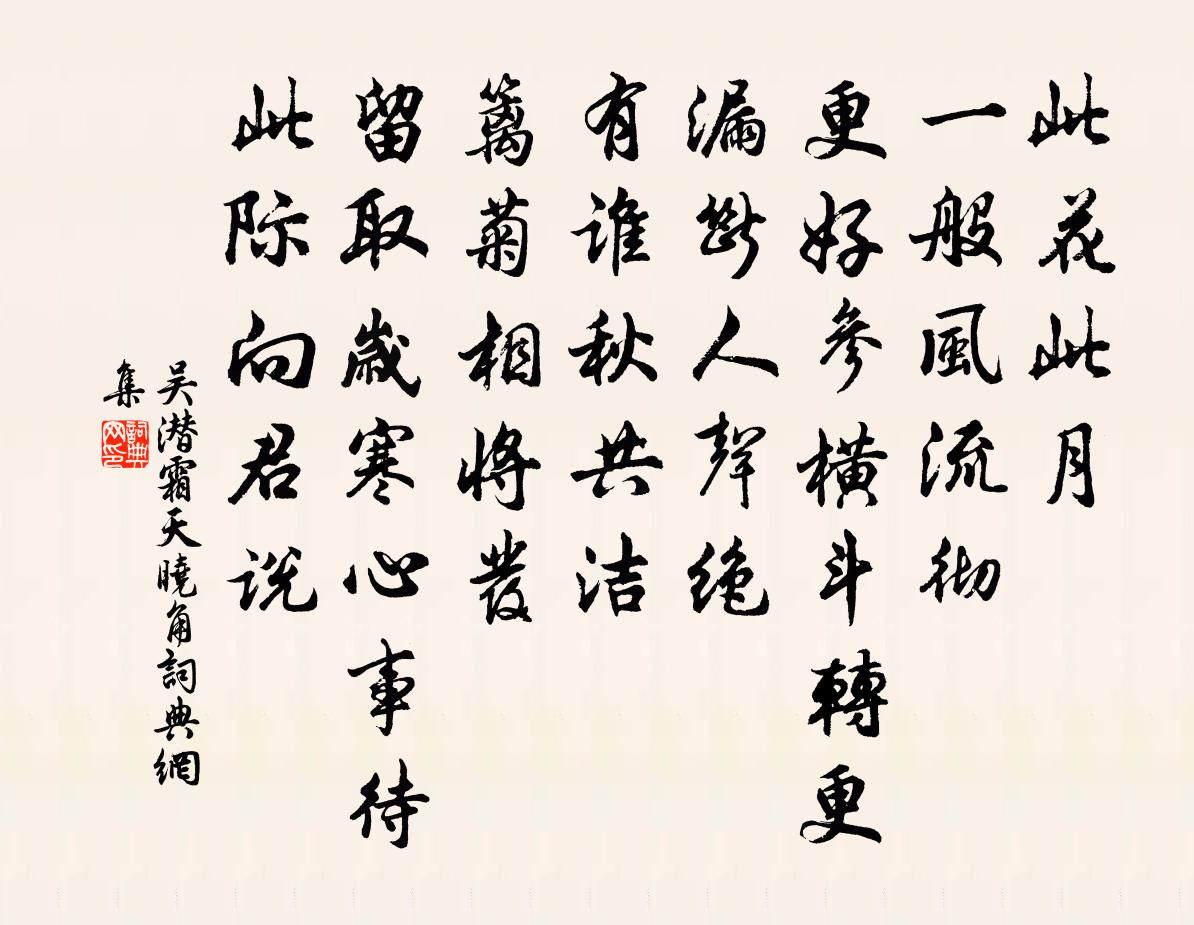 此花此月
一般風流彻
更好參橫斗轉更
漏斷人聲绝
有谁秋共洁
籬菊相將發
留取歲寒心事待
此际向君说
吴潜霜天曉角詞典網
集
詞典
网印